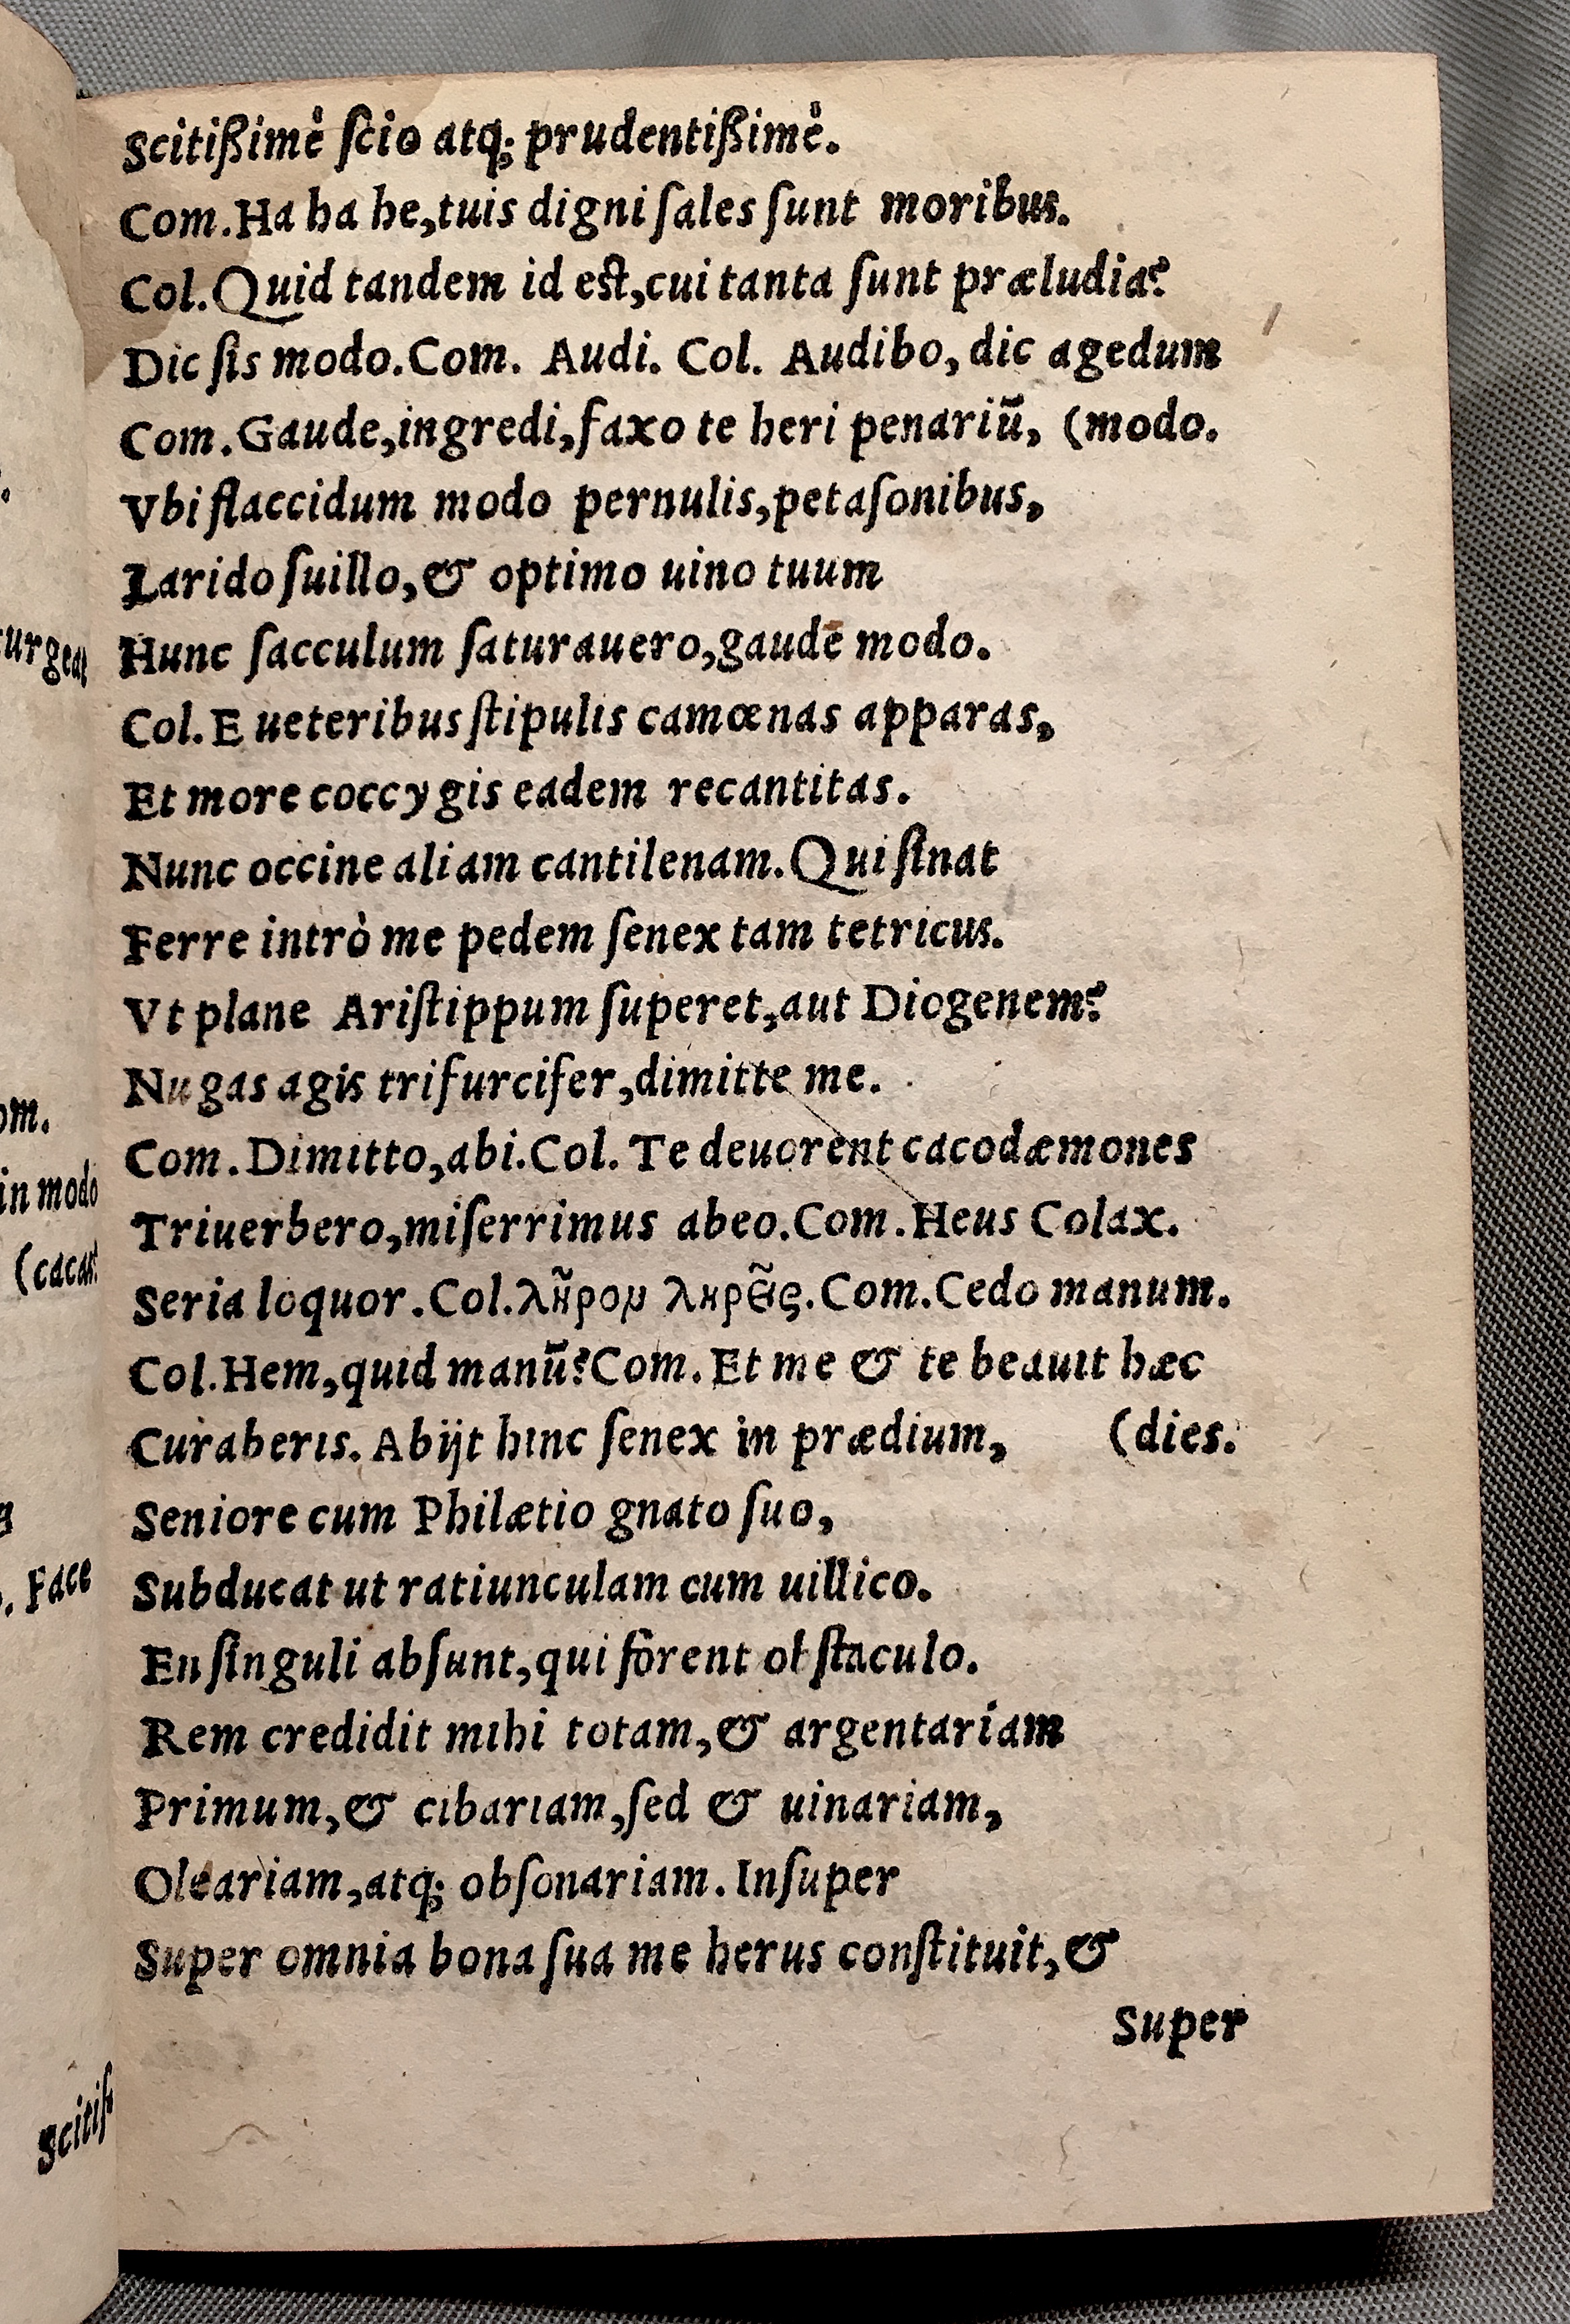 Scitißimè ſcio atq; prudentißimè.
Com. Ha ha he, tuis digni ſales ſunt moribus.
Col. Quid tandem id est, cui tanta ſunt præludia?
Dic ſis modo. Com. Audi. Col. Audibo, dic agedum
Com. Gaude, ingredi, faxo te heri penariū, (modo.
Vbi flaccidum modo pernulis, petaſonibus,
Larido ſuillo, & optimo uino tuum
Hunc ſacculum ſaturauero, gaude modo.
Col. E ueteribus ſtipulis camœnas apparas,
Et more coccygis eadem recantitas.
Nunc occine aliam cantilenam. Qui ſinat
Ferre intrò me pedem ſenex tam tetricus.
Vt plane Ariſtippum ſuperet, aut Diogenem?
Nugas agis trifurcifer, dimitte me.
Com. Dimitto, abi. Col. Te deuorent cacodæmones
Triuerbero, miſerrimus abeo. Com. Heus Colax.
Seria loquor. Col. λῆρον ληρεῖς. Com. Cedo manum.
Col. Hem, quid manū? Com. Et me & te beauit hæc
Curaberis. Abijt hinc ſenex in prædium, (dies.
Seniore cum Philætio gnato ſuo,
Subducat ut ratiunculam cum uillico.
En ſinguli abſunt, qui fôrent obſtaculo.
Rem credidit mihi totam, & argentariam
Primum, & cibariam, ſed & uinariam,
Oleariam, atq; obſonariam. Inſuper
Super omnia bona ſua me herus conſtituit, &
Super
urgeat
om.
in modo
(cacas?
. Face
Scitiß